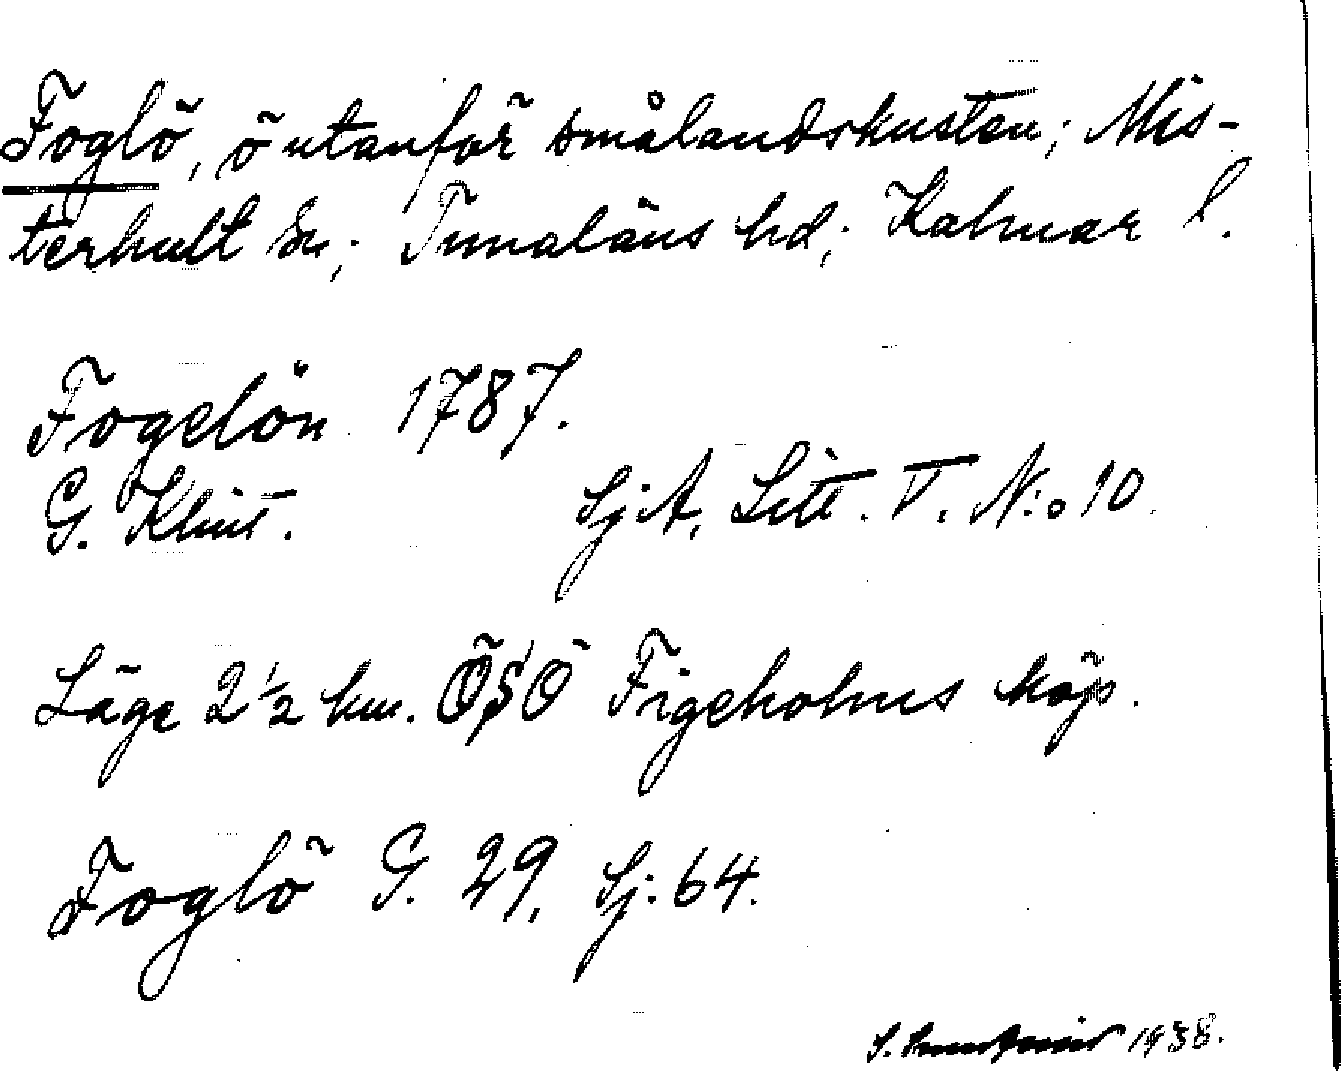 Foglö, ö utanför smålandskusten; Mis-
terhult sn; Tunaläns hd; Kalmar l.
Fogelön 1787.
G. Klint. SjA, Litt. V. N:o 10.
Läge 2 1/2 km. ÖSÖ Figeholms köp.
Foglö G. 29, Sj. 64.
S. 1938.